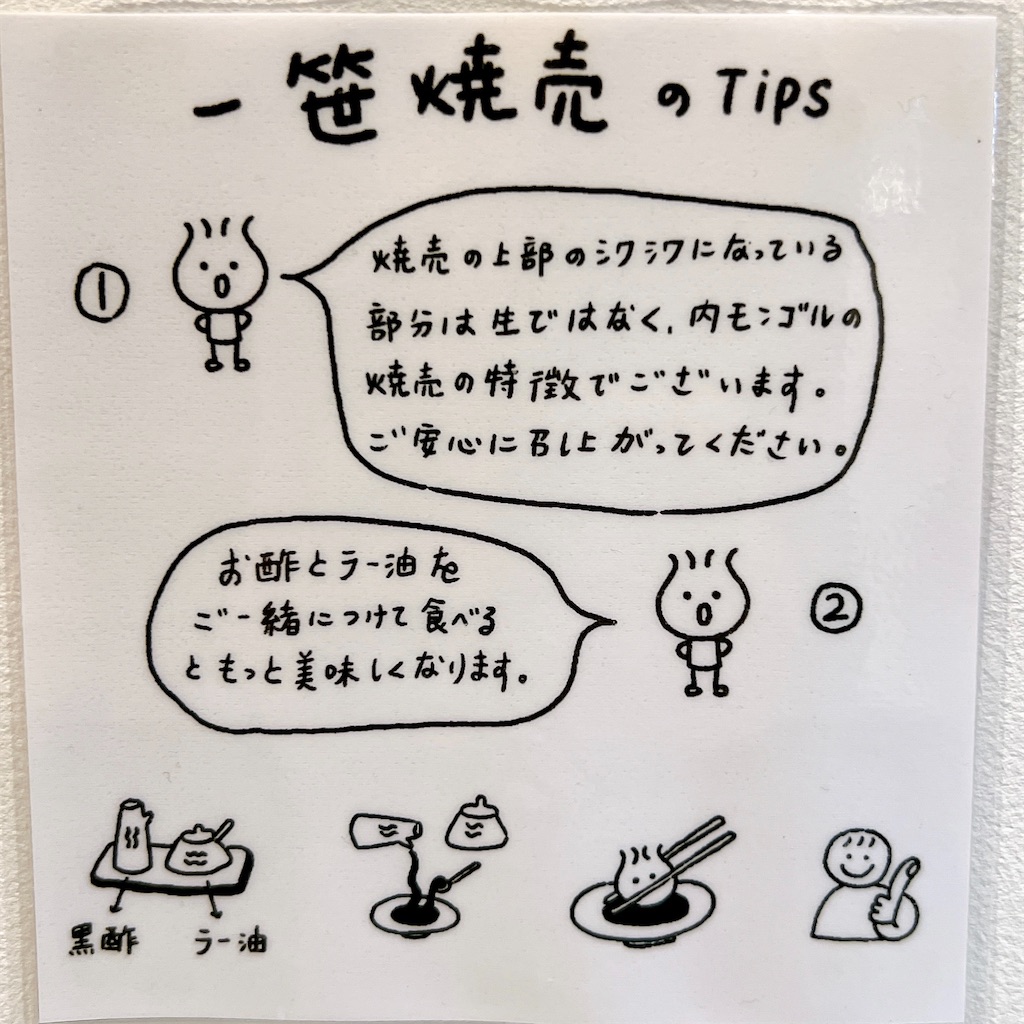 一笹焼売のTips
①
焼売の上部のシワシワになっている
部分は生ではなく、内モンゴルの
焼売の特徴でございます。
ご安心に召し上がってください。
お酢とラー油を
ご一緒につけて食べる
ともっと美味しくなります。
②
黒酢 ラー油